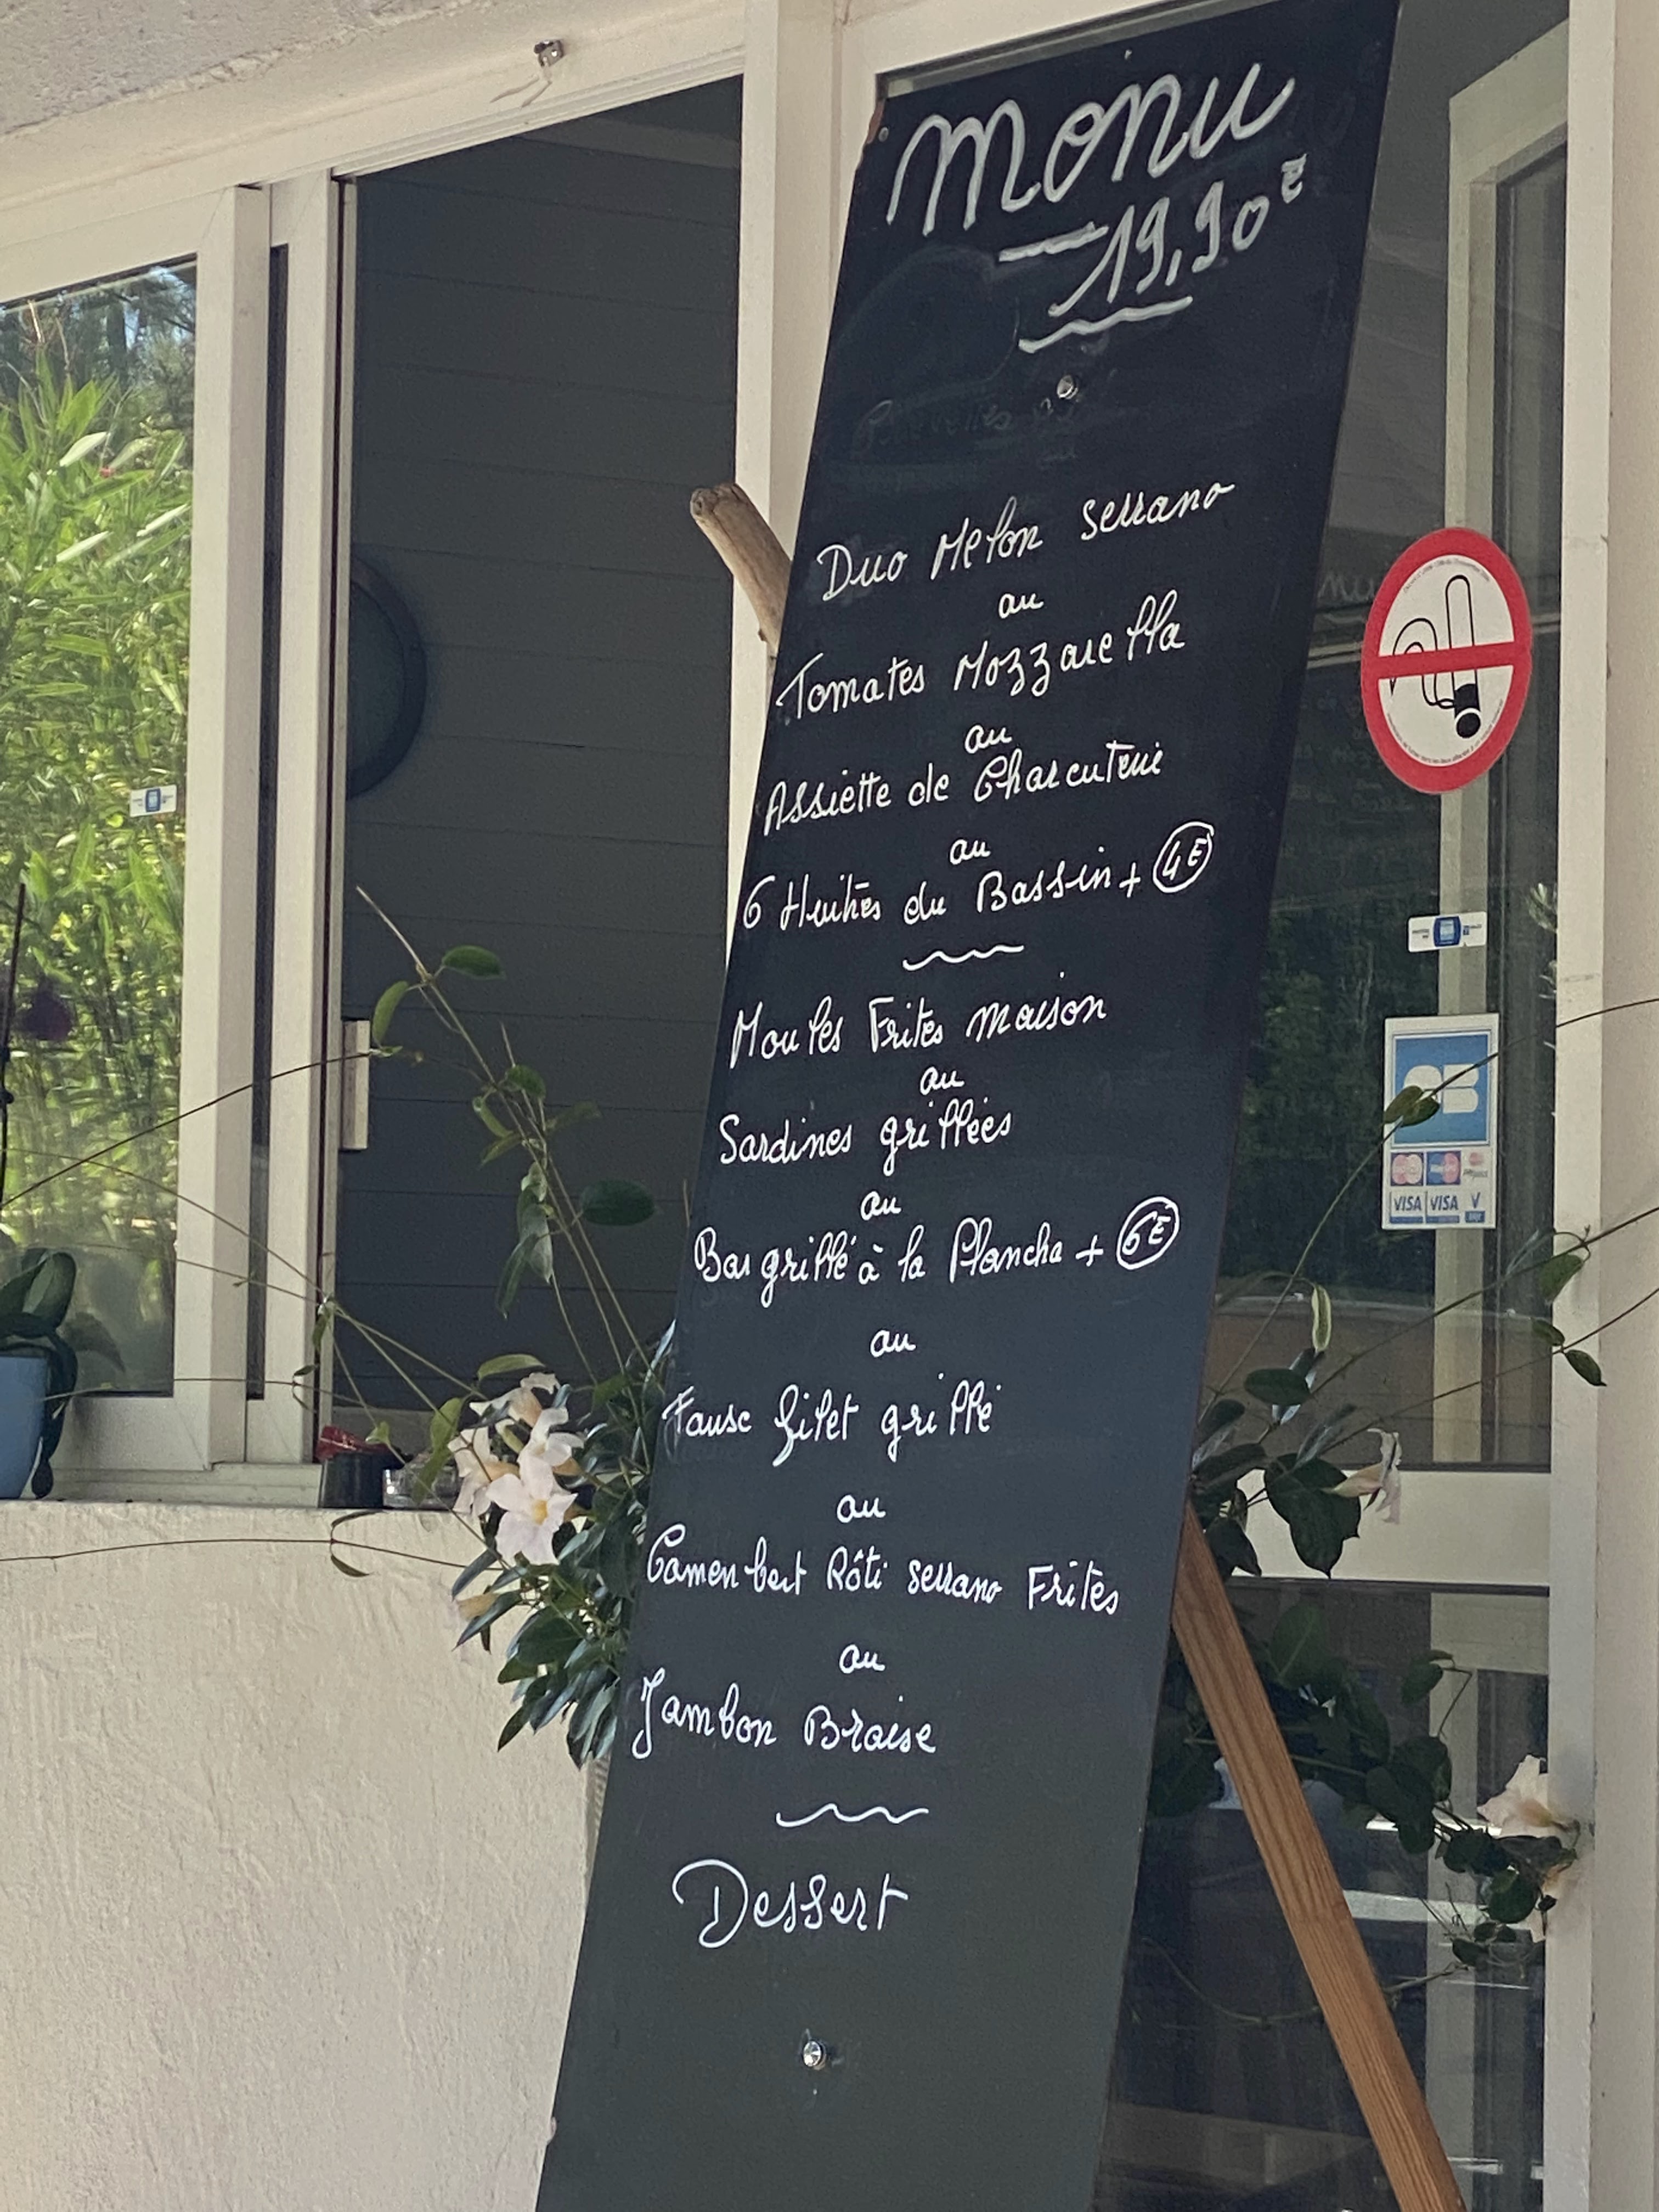 Menu
19,90€
Duo Melon Serrano
ou
Tomates Mozzarella
ou
Assiette de Charcuterie
ou
6 Huîtres du Bassin + 4€
Moules Frites maison
ou
Sardines grillées
ou
Bar grillé à la Plancha + 6€
ou
Faux filet grillé
ou
Camembert Rôti serrano Frites
ou
Jambon Braise
Dessert
CB
VISA VISA V